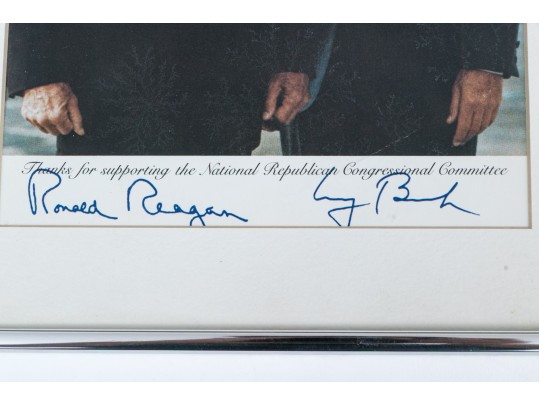 Thanks for supporting the National Republican Congressional Committee
Ronald Reagan Gy Bush